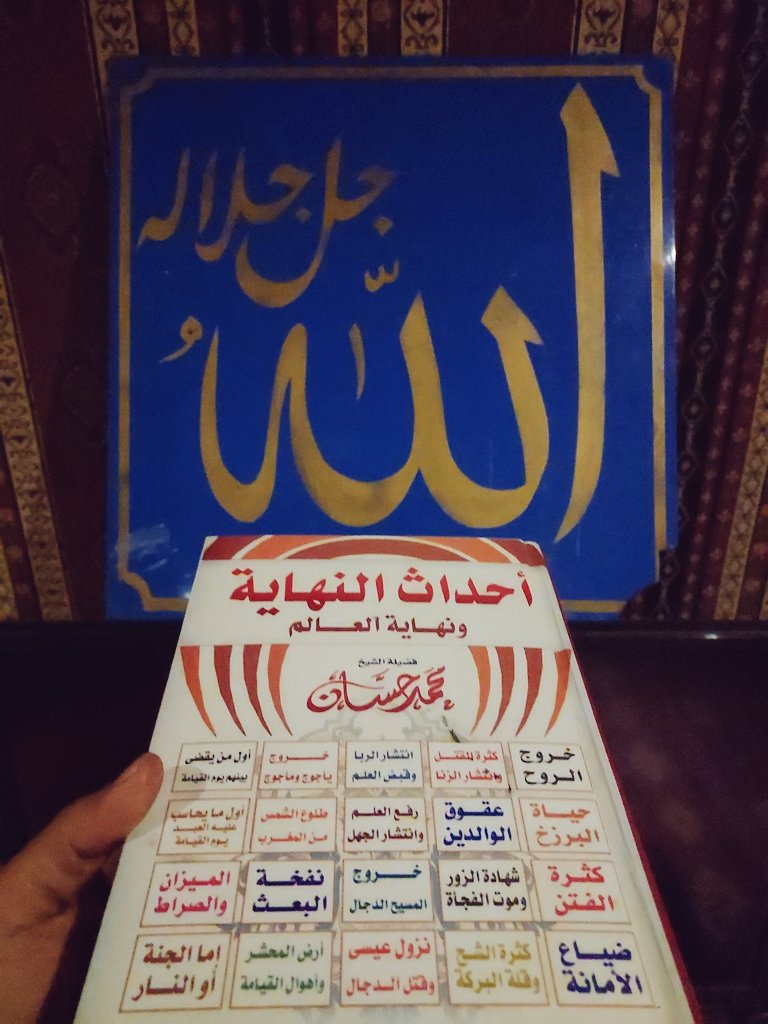 جل جلاله
الله
أحداث النهاية
ونهاية العالم
فضيلة الشيخ
محمد حسان
خروج
الروح
كثرة القتل
وانتشار الزنا
انتشار الربا
وقبض العلم
خروج
ياجوج وماجوج
أول من يقضى
بينهم يوم القيامة
حياة
البرزخ
عقوق
الوالدين
رفع العلم
وانتشار الجهل
طلوع الشمس
من المغرب
أول ما يحاسب
عليه العبد
يوم القيامة
كثرة
الفتن
شهادة الزور
وموت الفجأة
خروج
المسيح الدجال
نفخة
البعث
الميزان
والصراط
ضياع
الأمانة
كثرة الشح
وقلة البركة
نزول عيسى
وقتل الدجال
أرض المحشر
وأهوال القيامة
إما الجنة
أو النار